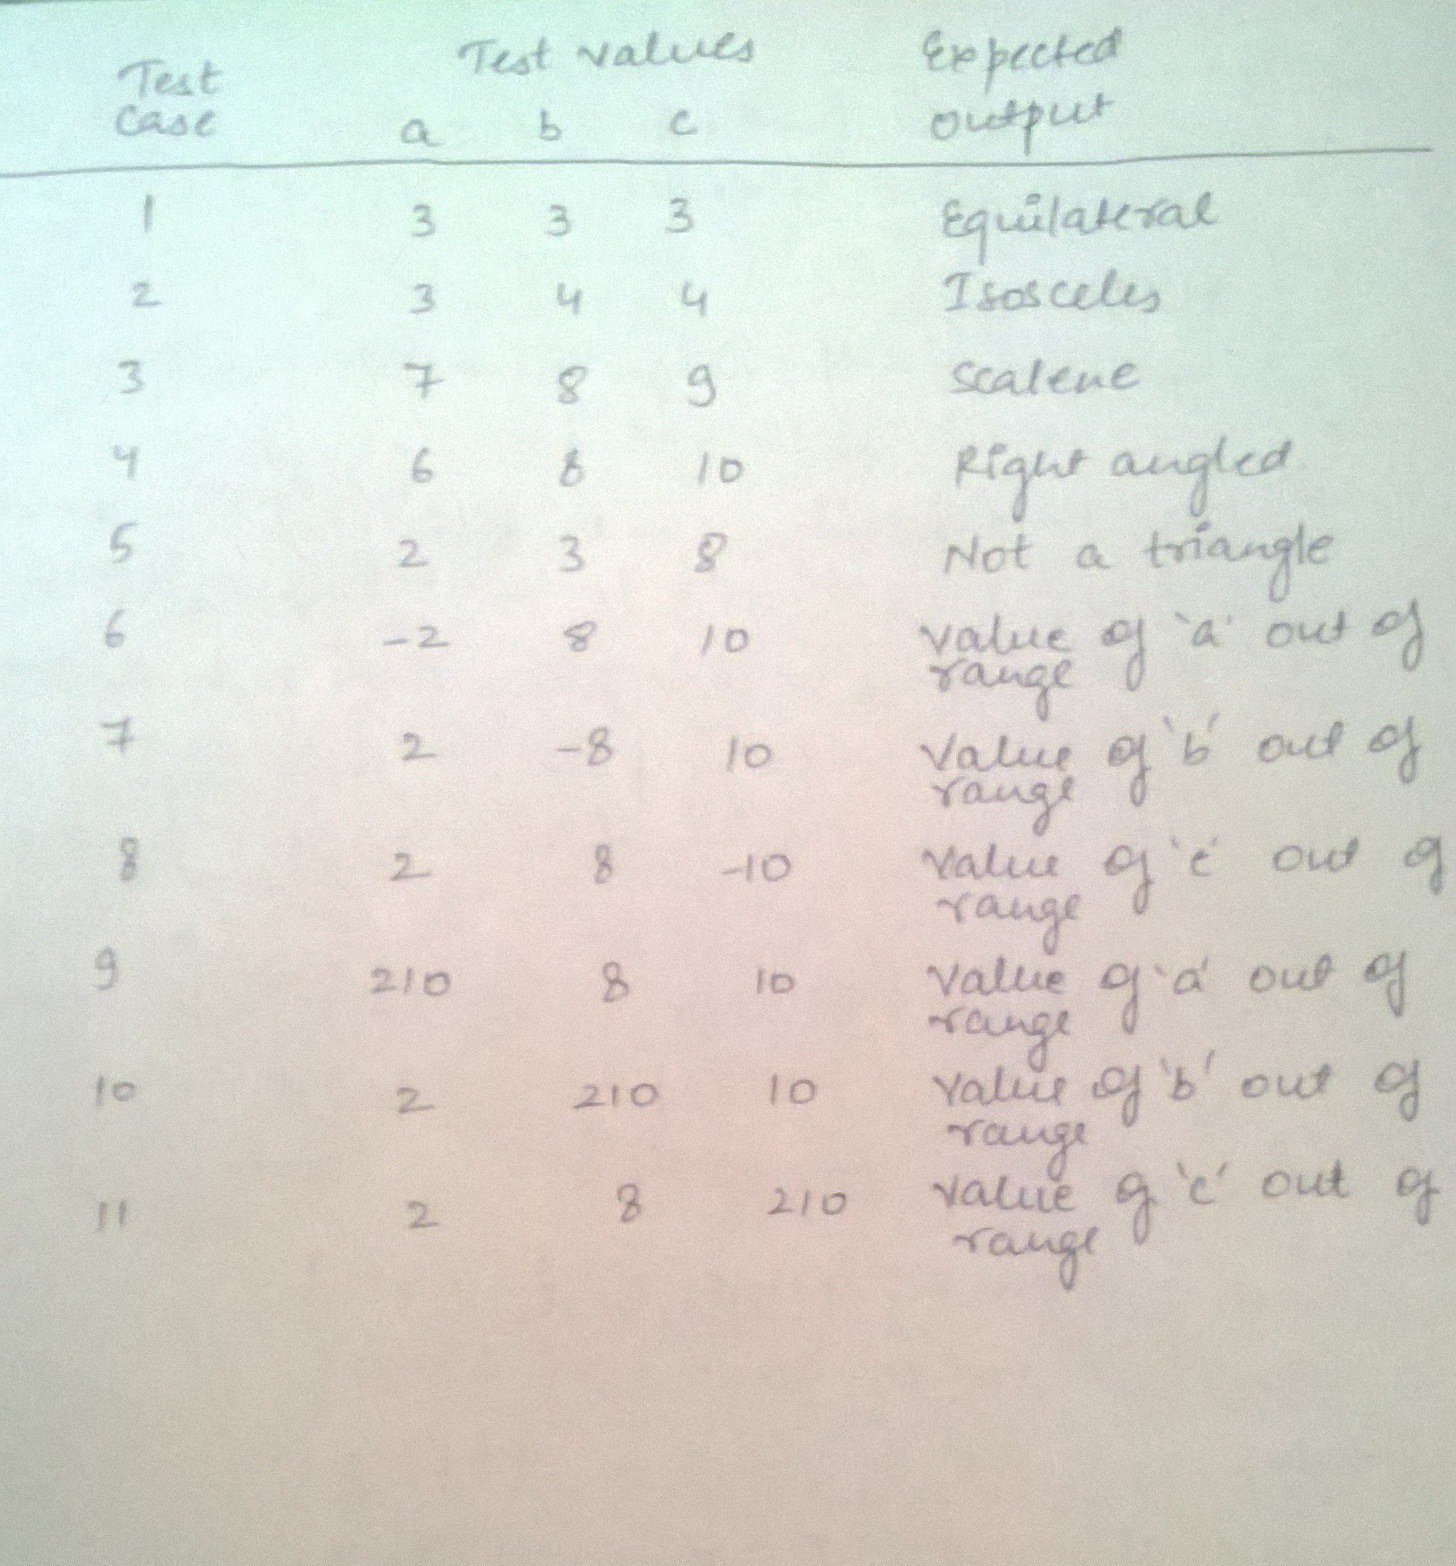 Test values Expected
Test
Case a b c output
1 3 3 3 Equilateral
2 3 4 4 Isosceles
3 7 8 9 Scalene
4 6 8 10 Right angled
5 2 3 8 Not a triangle
6 -2 8 10 value of 'a' out of
range
7 2 -8 10 Value of 'b' out of
range
8 2 8 -10 Value of 'c' out of
range
9 210 8 10 Value of 'a' out of
range
10 2 210 10 Value of 'b' out of
range
11 2 8 210 Value of 'c' out of
range